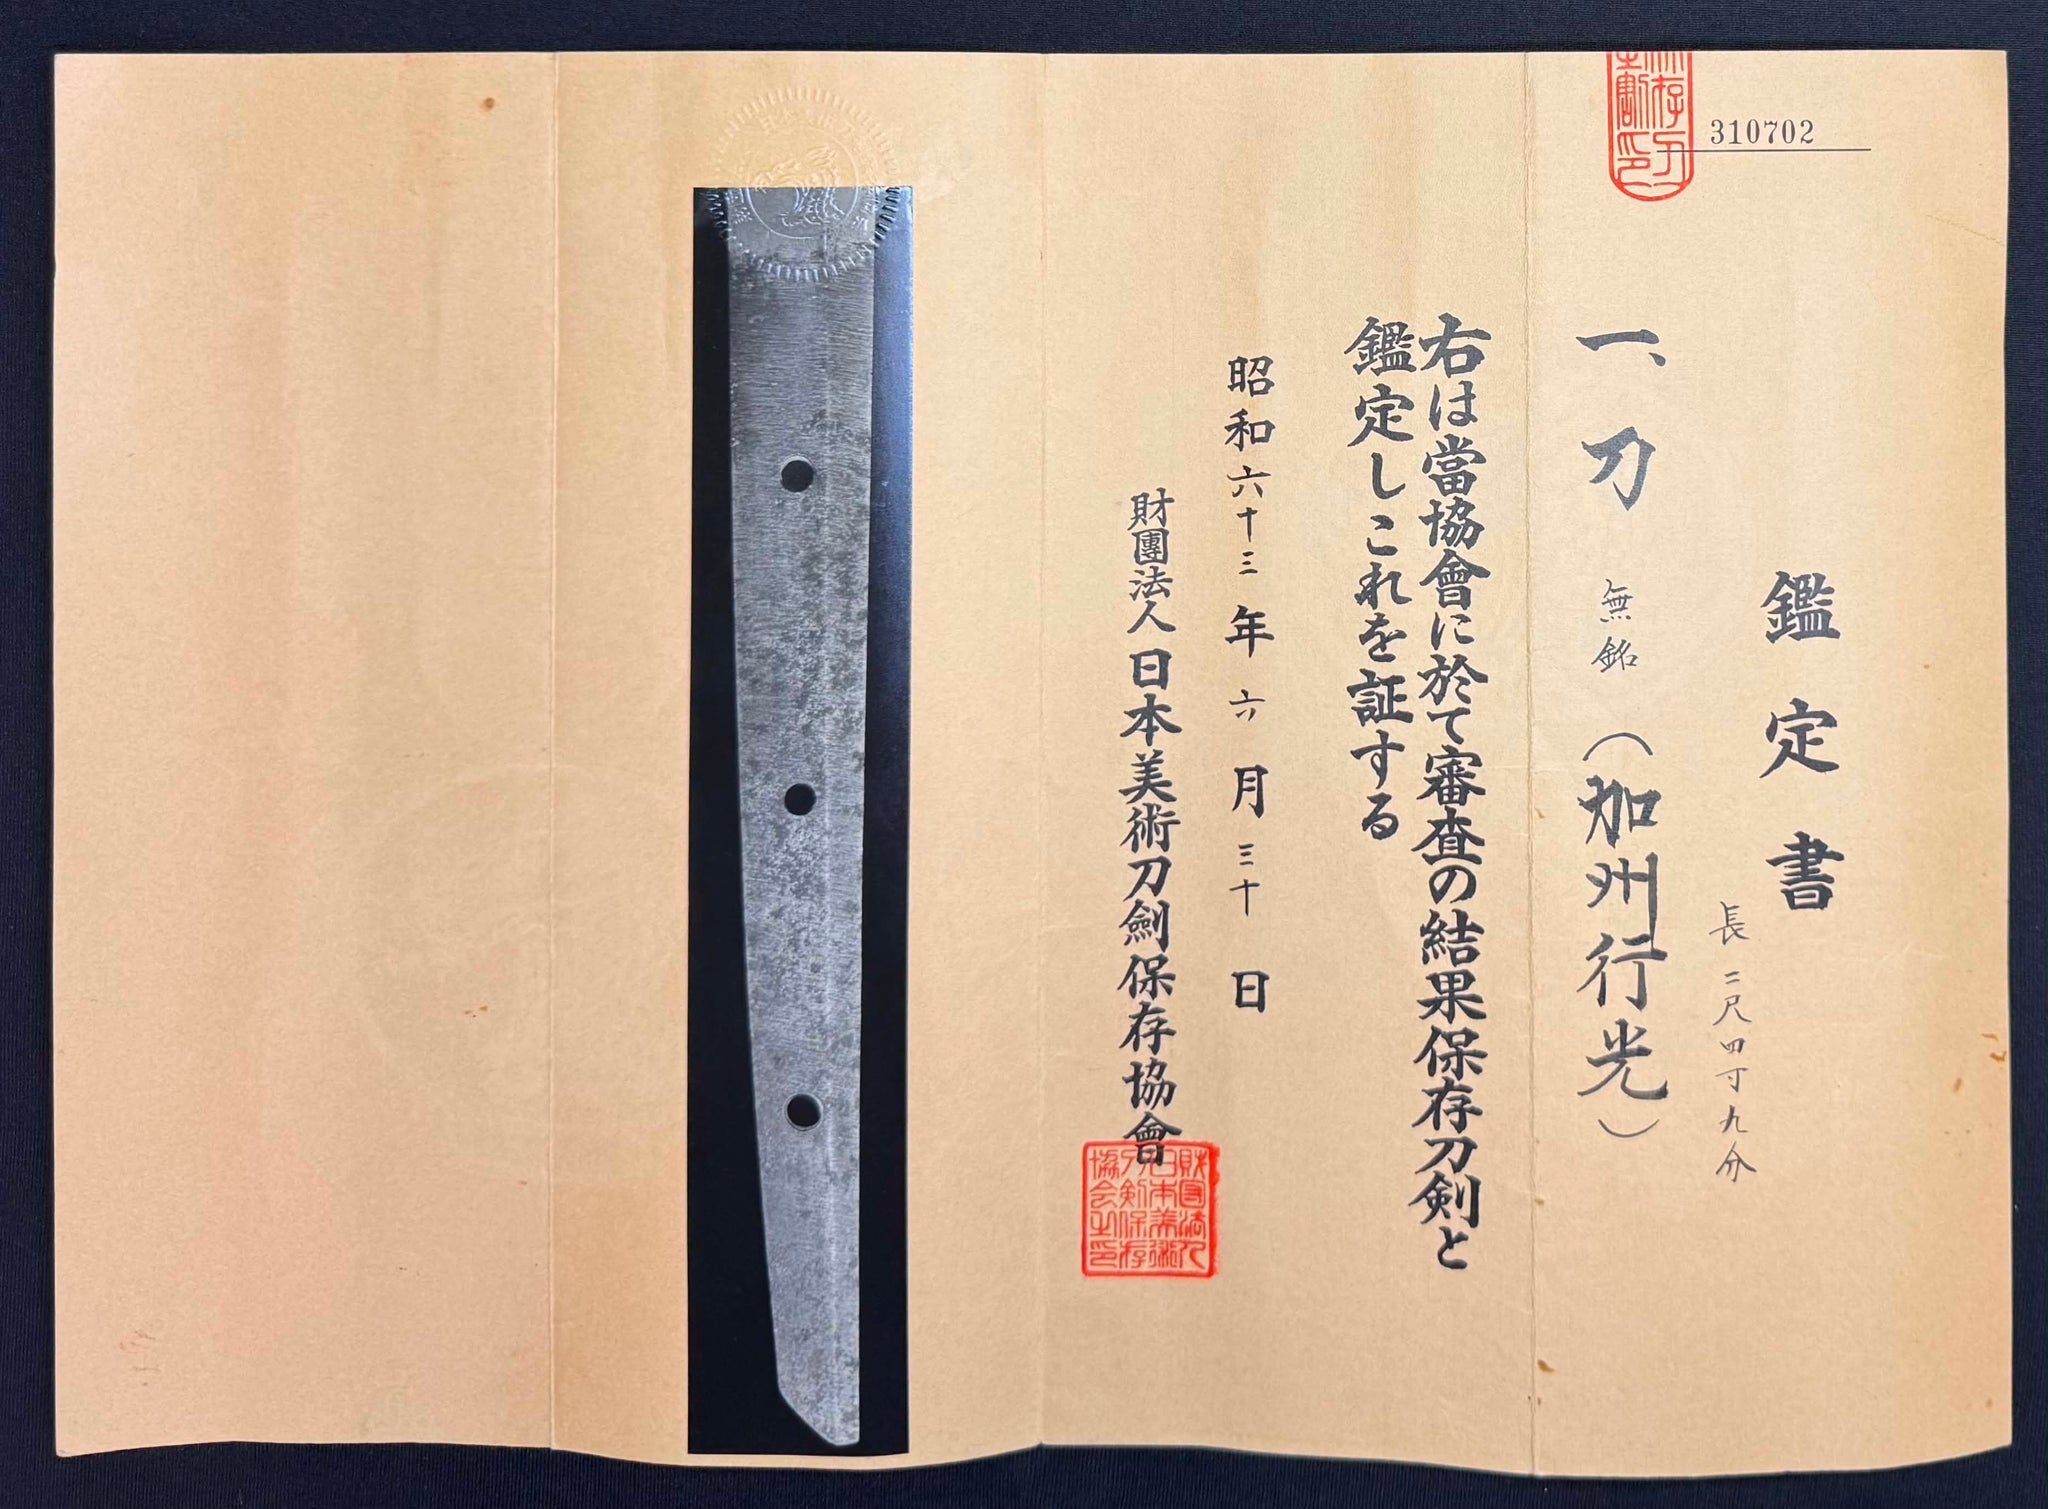 310702
鑑定書
長二尺四寸九分
一、刀 無銘（加州行光）
右は當協會に於て審査の結果保存刀剣と
鑑定しこれを証する
昭和六十三年六月三十日
財團法人日本美術刀劍保存協會
財団法人
日本美術
刀剣保存
協会之印